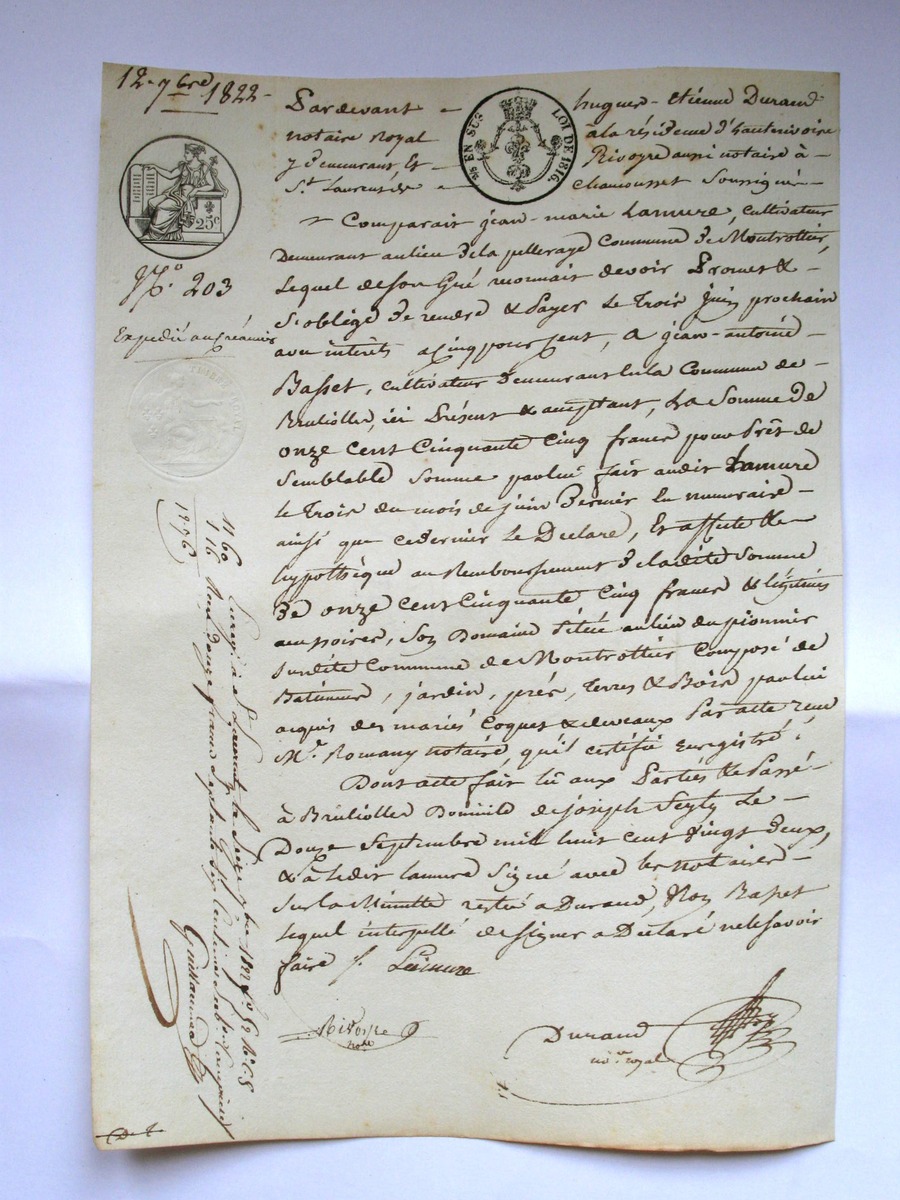 12. 7bre 1822
Pardevant hugues-etienne Durand
notaire Royal à la résidence d'hauterivoire
y demeurant, Et Rivoyre aussi notaire à
St. Laurent de Chamousset Soussignés
25 EN SUS LOI DE 1816.
25c
No. 203
Expedié au créancier
Comparait jean-marie Lamure, cultivateur
Demeurant au lieu de la pellerage Commune de Montrottier,
Lequel de son Gré reconnait devoir Promet &
S'oblige de rendre & Payer Le Trois juin prochain
avec intérêts a cinq pour cent, a jean-antoine
Basset, cultivateur demeurant en la Commune de
Bruliolles, ici Présent & acceptant, La Somme de
onze cent Cinquante Cinq francs pour Prêt de
Semblable Somme par lui fait audit Lamure
le Trois du mois de juin dernier en numeraire
ainsi que ce dernier Le Déclare, Et affecte &
hypothèque au Remboursement de ladite Somme
De onze cent Cinquante Cinq francs & légitimes
accessoires, Son Domaine Situé au lieu du pionnier
Susdite Commune de Montrottier Composé de
Batiments, jardin, prés, Terres & Bois par lui
acquis des mariés Coquet & deveaux Par acte reçu
Me. Romany notaire, qu'il certifie enregistré.
Dont acte fait lû aux Parties & Passé
à Bruliolles Domicile de joseph Seyty Le
Douze Septembre mil huit cent vingt deux,
& a ledit Lamure Signé avec les notaires
Sur la Minutte restée a Durand, Non Basset
Lequel interpellé de signer a Déclaré ne le Savoir
faire Lamure
Rivoyre
nore
Durand
nore royal
1160
116
1276
Enregé à St. Laurent le Sept 7bre 1822 fo. 52
Reçu douze francs Soixante Seize Centimes Subvention comprise
Guillermet